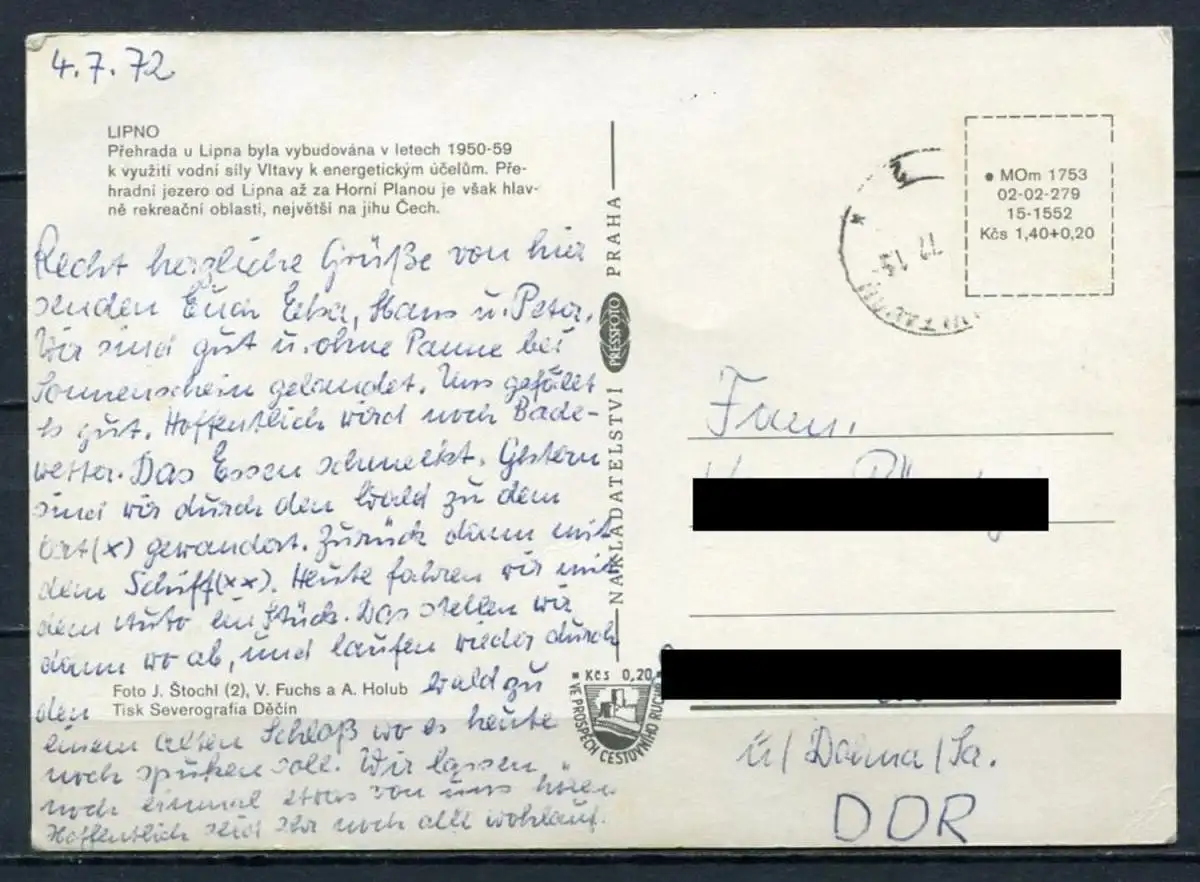 4.7.72
LIPNO
Přehrada u Lipna byla vybudována v letech 1950-59
k využití vodní síly Vltavy k energetickým účelům. Pře-
hradní jezero od Lipna až za Horní Planou je však hlav-
ně rekreační oblastí, největší na jihu Čech.
Recht herzliche Grüße von hier
senden Euch Hans u. Peter.
Wir sind gut u. ohne Panne bei
Sonnenschein gelandet. Uns gefällt
es gut. Hoffentlich wird noch Bade-
wetter. Das Essen schmeckt. Gestern
sind wir durch den Wald zu dem
Ort(x) gewandert. Zurück dann mit
dem Schiff(xx). Heute fahren wir mit
dem Auto ein Stück. Das stellen wir
dann wo ab, und laufen wieder durch
den Wald zu
einem alten Schloß wo es heute
noch spuken soll. Wir lassen
noch einmal etwas von uns hören
Hoffentlich seid Ihr noch alle wohlauf.
Foto J. Štochl (2), V. Fuchs a A. Holub
Tisk Severografia Děčín
NAKLADATELSTVÍ PRESSFOTO PRAHA
Kčs 0,20
VE PROSPĚCH CESTOVNÍHO RUCHU
MOm 1753
02-02-279
15-1552
Kčs 1,40+0,20
Fam.
ü/ Dohna/Sa.
DDR